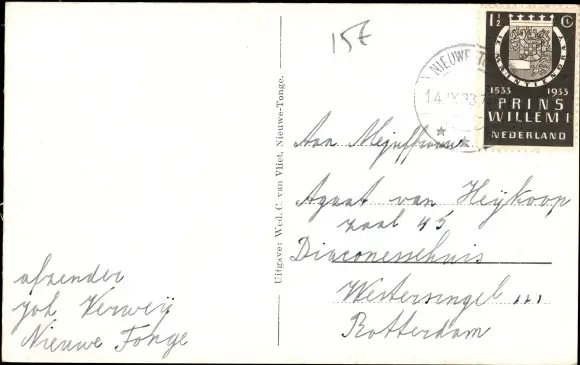 15f
1½ ct
JE MAINTIENDRAI
1533 1933
PRINS
WILLEM I
NEDERLAND
NIEUWE TONGE
14.IX.33.
Uitgave: Wed. C. van Vliet, Nieuwe-Tonge.
Aan Mejuffrouw
Agaat van Heykoop
zaal 45
Diaconessehuis
Westersingel
Rotterdam
afzender
Joh Verweij
Nieuwe Tonge